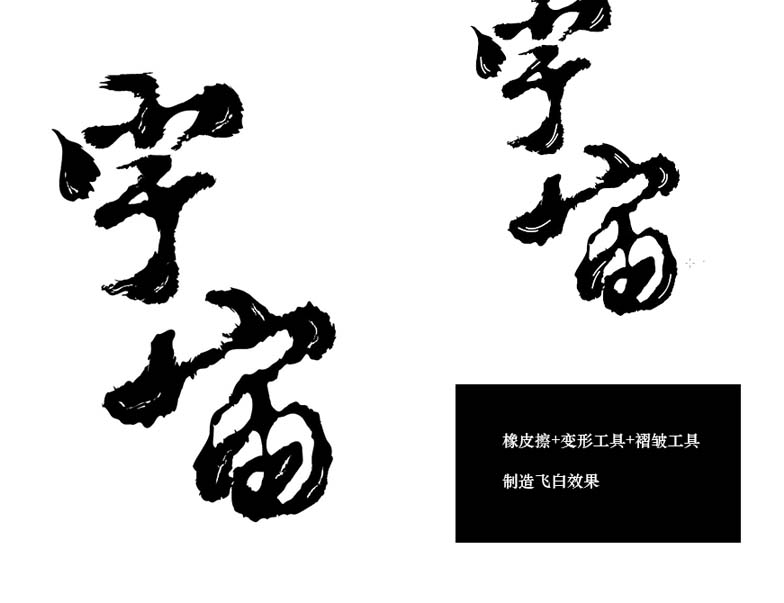 宇
宙
宇
宙
橡皮擦+变形工具+褶皱工具
制造飞白效果